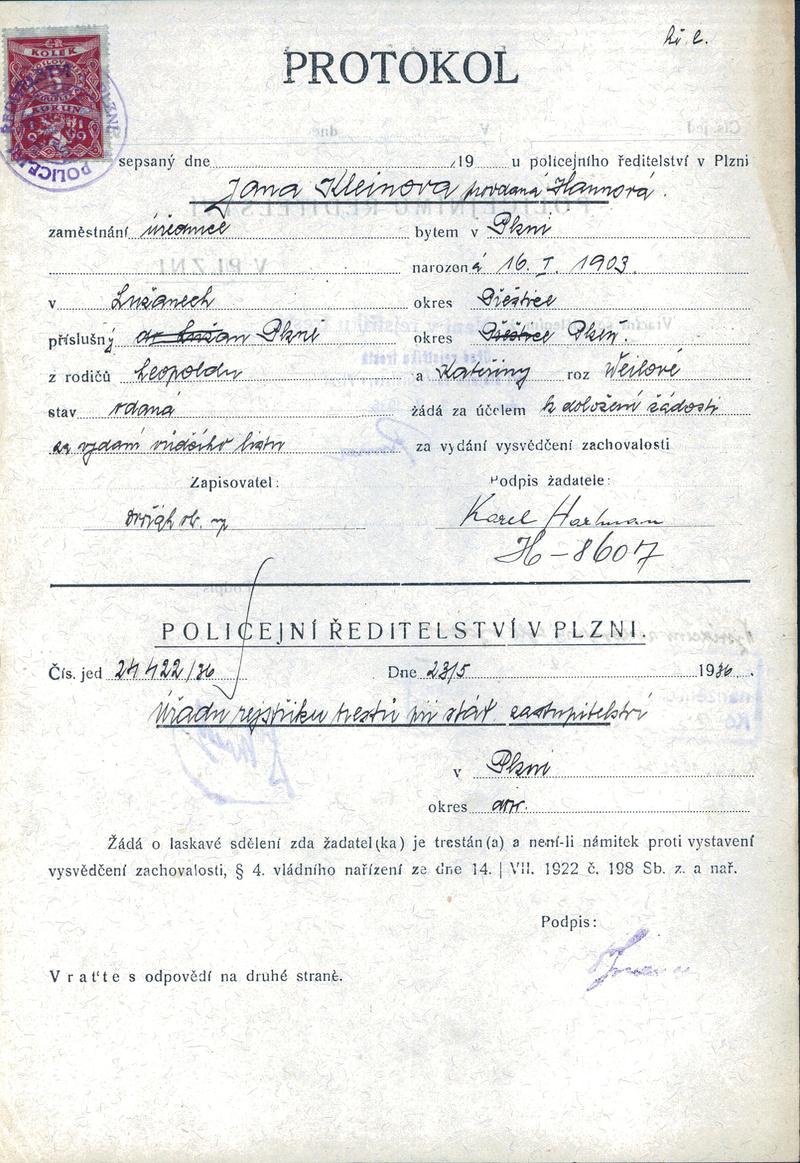 ři. l.
KOLEK
KORUN
POLICEJNÍ ŘEDITELSTVÍ V PLZNI
PROTOKOL
sepsaný dne 19 u policejního ředitelství v Plzni
Jana Kleinova provdaná Hannová.
zaměstnání úřednice bytem v Plzni
narozená 16. I. 1903.
v Lužanech okres Přeštice
příslušný do Lužan Plzně okres Přeštice Plzeň.
z rodičů Leopolda a Kateřiny roz Weilové
stav vdaná žádá za účelem k doložení žádosti
za vydání vůdčího listu za vydání vysvědčení zachovalosti
Zapisovatel: Podpis žadatele:
Karel Hartman
H-8607
POLICEJNÍ ŘEDITELSTVÍ V PLZNI.
Čís. jed 24422/36 Dne 23/5 1936.
Úřadu rejstříku trestů při stát. zastupitelství
v Plzni
okres
Žádá o laskavé sdělení zda žadatel(ka) je trestán(a) a není-li námitek proti vystavení
vysvědčení zachovalosti, § 4. vládního nařízení ze dne 14. | VII. 1922 č. 198 Sb. z. a nař.
Podpis:
Vraťte s odpovědí na druhé straně.